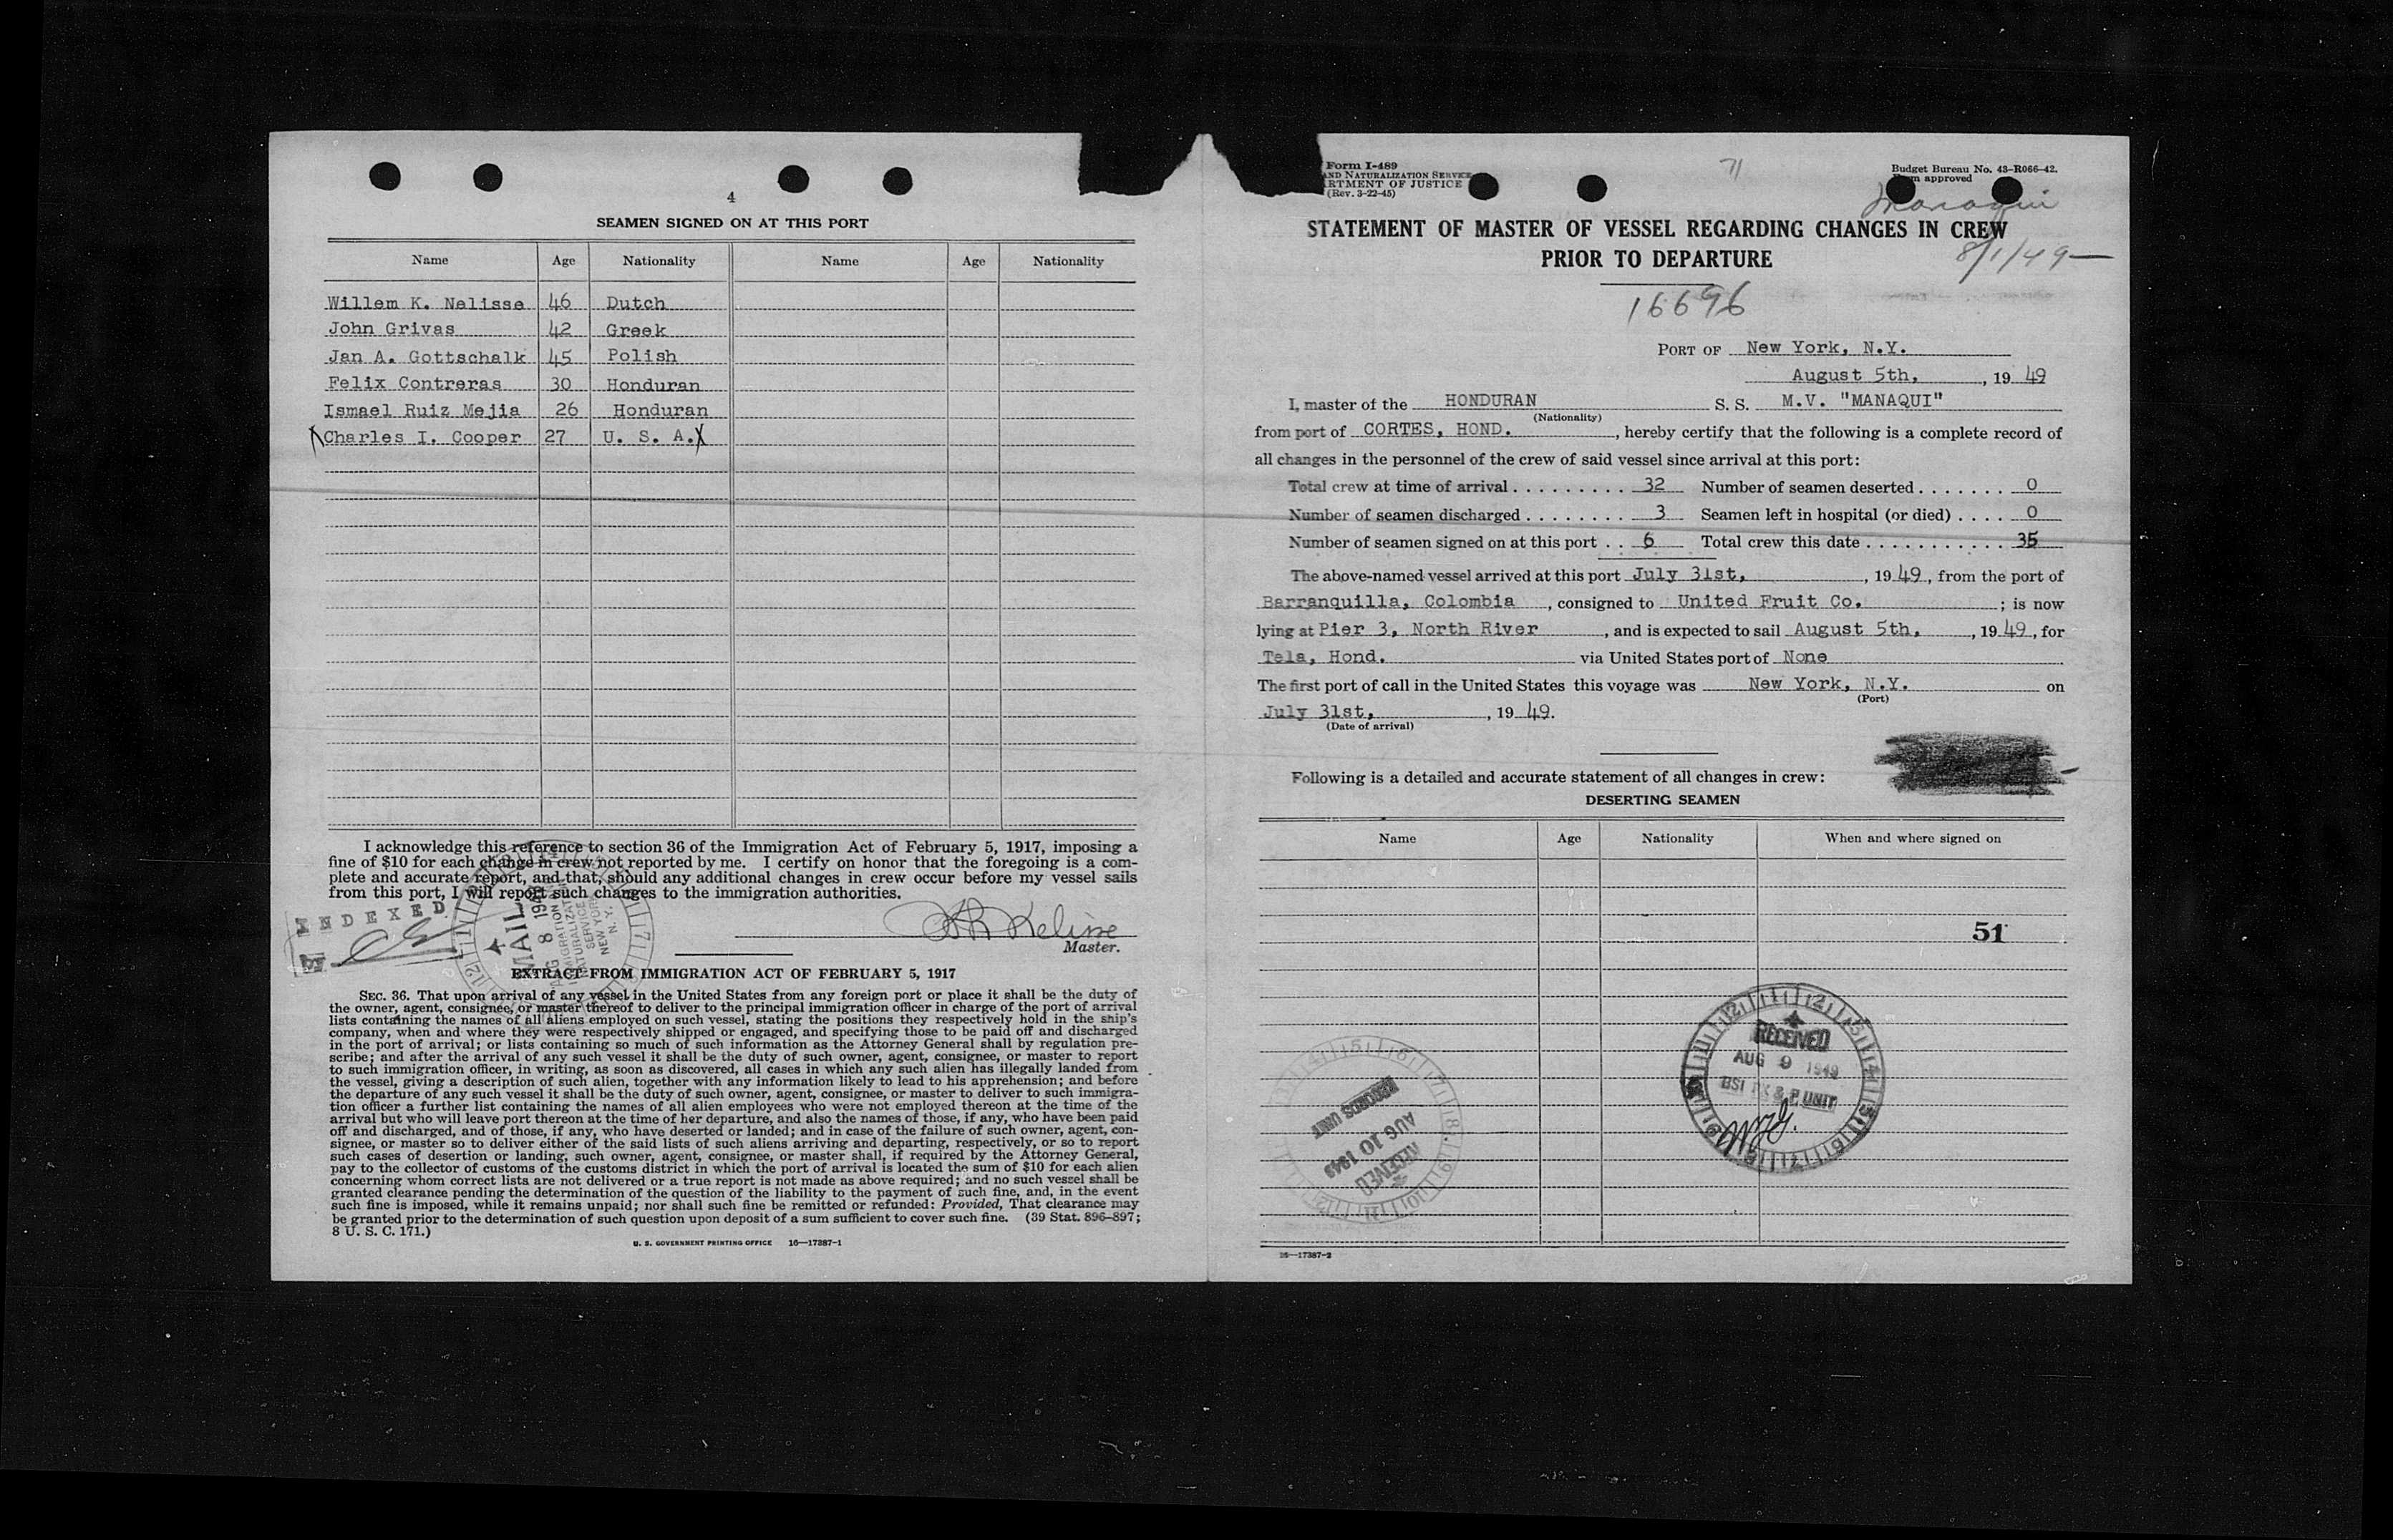 4
SEAMEN SIGNED ON AT THIS PORT
Name Age Nationality Name Age Nationality
Willem K. Nelisse 46 Dutch
John Grivas 42 Greek
Jan A. Gottschalk 45 Polish
Felix Contreras 30 Honduran
Ismael Ruiz Mejia 26 Honduran
Charles I. Cooper 27 U. S. A.
I acknowledge this reference to section 36 of the Immigration Act of February 5, 1917, imposing a
fine of $10 for each change in crew not reported by me. I certify on honor that the foregoing is a com-
plete and accurate report, and that, should any additional changes in crew occur before my vessel sails
from this port, I will report such changes to the immigration authorities.
INDEXED
MAIL
AUG 8 1949
IMMIGRATION &
NATURALIZATION
SERVICE
NEW YORK
N. Y.
Master.
EXTRACT FROM IMMIGRATION ACT OF FEBRUARY 5, 1917
SEC. 36. That upon arrival of any vessel in the United States from any foreign port or place it shall be the duty of
the owner, agent, consignee, or master thereof to deliver to the principal immigration officer in charge of the port of arrival
lists containing the names of all aliens employed on such vessel, stating the positions they respectively hold in the ship's
company, when and where they were respectively shipped or engaged, and specifying those to be paid off and discharged
in the port of arrival; or lists containing so much of such information as the Attorney General shall by regulation pre-
scribe; and after the arrival of any such vessel it shall be the duty of such owner, agent, consignee, or master to report
to such immigration officer, in writing, as soon as discovered, all cases in which any such alien has illegally landed from
the vessel, giving a description of such alien, together with any information likely to lead to his apprehension; and before
the departure of any such vessel it shall be the duty of such owner, agent, consignee, or master to deliver to such immigra-
tion officer a further list containing the names of all alien employees who were not employed thereon at the time of the
arrival but who will leave port thereon at the time of her departure, and also the names of those, if any, who have been paid
off and discharged, and of those, if any, who have deserted or landed; and in case of the failure of such owner, agent, con-
signee, or master so to deliver either of the said lists of such aliens arriving and departing, respectively, or so to report
such cases of desertion or landing, such owner, agent, consignee, or master shall, if required by the Attorney General,
pay to the collector of customs of the customs district in which the port of arrival is located the sum of $10 for each alien
concerning whom correct lists are not delivered or a true report is not made as above required; and no such vessel shall be
granted clearance pending the determination of the question of the liability to the payment of such fine, and, in the event
such fine is imposed, while it remains unpaid; nor shall such fine be remitted or refunded: Provided, That clearance may
be granted prior to the determination of such question upon deposit of a sum sufficient to cover such fine. (39 Stat. 896-897;
8 U. S. C. 171.)
U. S. GOVERNMENT PRINTING OFFICE 16—17387-1
Form I-489
AND NATURALIZATION SERVICE
RTMENT OF JUSTICE
(Rev. 3-22-45)
71
Budget Bureau No. 43-R066-42.
approved
Manaqui
STATEMENT OF MASTER OF VESSEL REGARDING CHANGES IN CREW
PRIOR TO DEPARTURE
8/1/49
16696
PORT OF New York, N.Y.
August 5th, , 19 49
I, master of the HONDURAN S. S. M.V. "MANAQUI"
(Nationality)
from port of CORTES, HOND. , hereby certify that the following is a complete record of
all changes in the personnel of the crew of said vessel since arrival at this port:
Total crew at time of arrival . . . . . . . . . 32 Number of seamen deserted . . . . . . . 0
Number of seamen discharged . . . . . . . . 3 Seamen left in hospital (or died) . . . . 0
Number of seamen signed on at this port . . 6 Total crew this date . . . . . . . . . . . 35
The above-named vessel arrived at this port July 31st, , 19 49 , from the port of
Barranquilla, Colombia , consigned to United Fruit Co. ; is now
lying at Pier 3, North River , and is expected to sail August 5th, , 19 49 , for
Tela, Hond. via United States port of None
The first port of call in the United States this voyage was New York, N.Y. on
(Port)
July 31st, , 19 49.
(Date of arrival)
Following is a detailed and accurate statement of all changes in crew:
DESERTING SEAMEN
Name Age Nationality When and where signed on
51
RECEIVED
AUG 9 1949
UNIT
RECORDS UNIT
AUG 10 1949
RECEIVED
16—17387-2